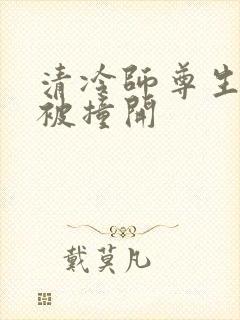 清冷师尊生
被撞开
戴莫凡